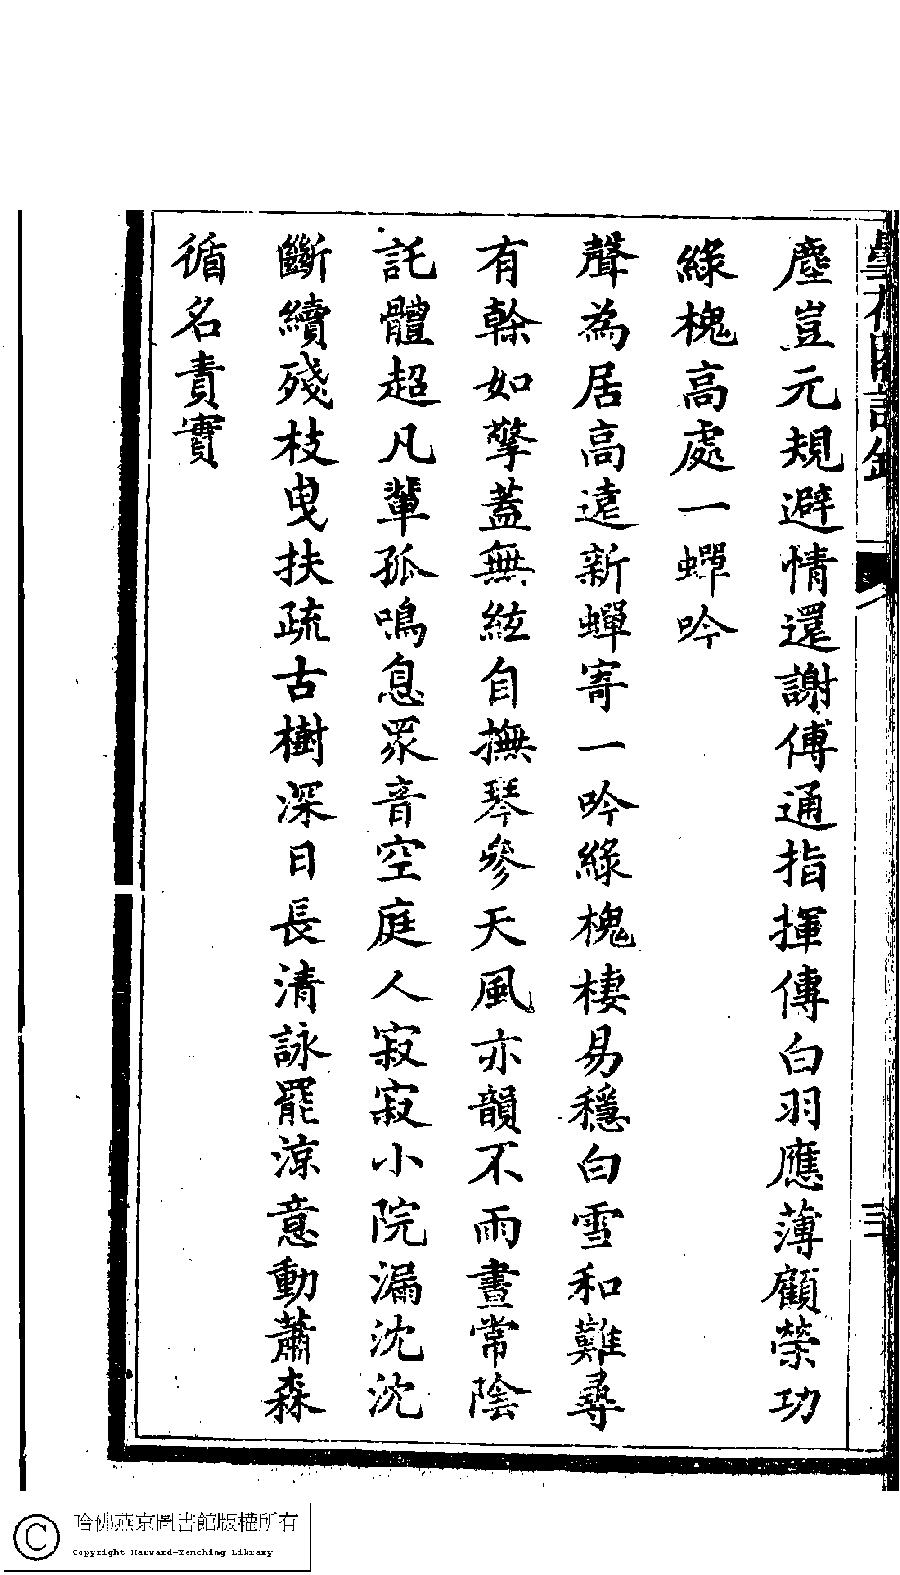 塵豈元規避情還謝傅通指揮傳白羽應薄顧榮功
綠槐高處一蟬吟
聲為居高遠新蟬寄一吟綠槐棲易穩白雪和難尋
有榦如擎蓋無絃自撫琴參天風亦韻不雨晝常陰
託體超凡輩孤鳴息眾音空庭人寂寂小院漏沈沈
斷續殘枝曳扶疏古樹深日長清詠罷涼意動蕭森
循名責實
三
哈佛燕京圖書館版權所有
Copyright Harvard-Yenching Library